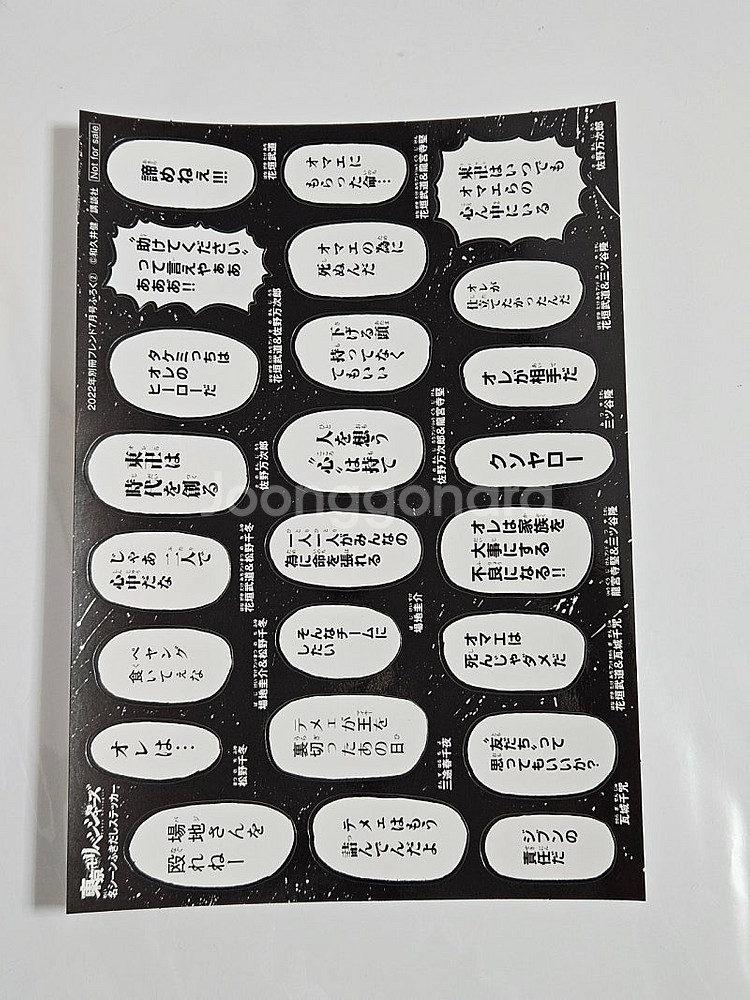 Not for sale
2022年別冊フレンド7月号ふろく② ©和久井健／講談社
東京卍リベンジャーズ
名シーンふきだしステッカー
諦めねぇ!!!
花垣武道
“助けてください”
って言えやぁぁ
あああ!!
タケミっちは
オレの
ヒーローだ
花垣武道&佐野万次郎
東卍は
時代を創る
佐野万次郎
じゃあ二人で
心中だな
花垣武道&松野千冬
ペヤング
食いてぇな
場地圭介&松野千冬
オレは…
松野千冬
場地さんを
殴れねー
オマエに
もらった命…
花垣武道&龍宮寺堅
オマエの為に
死ぬんだ
下げる頭
持ってなく
てもいい
人を想う
“心”は持て
佐野万次郎&龍宮寺堅
一人一人がみんなの
為に命を張れる
そんなチームに
したい
場地圭介
テメェが王を
裏切ったあの日
三途春千夜
テメェはもう
詰んでんだよ
東卍はいつでも
オマエらの
心ん中にいる
佐野万次郎
オレが
仕立てたかったんだ
花垣武道&三ツ谷隆
オレが相手だ
三ツ谷隆
クソヤロー
オレは家族を
大事にする
不良になる!!
龍宮寺堅&三ツ谷隆
オマエは
死んじゃダメだ
花垣武道&瓦城千咒
“友だち”って
思ってもいいか?
瓦城千咒
ジブンの
責任だ
Joonggonara